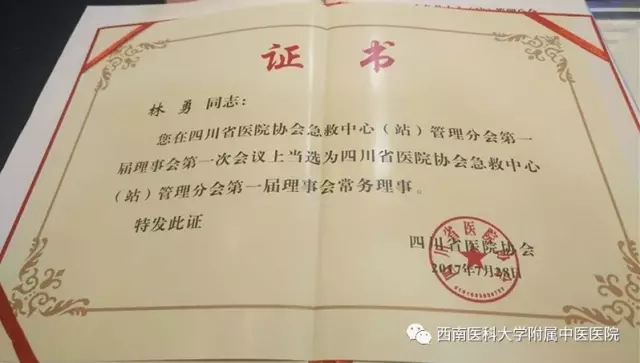 证书
林勇 同志：
您在四川省医院协会急救中心（站）管理分会第一
届理事会第一次会议上当选为四川省医院协会急救中心
（站）管理分会第一届理事会常务理事。
特发此证
四川省医院协会
2017年7月28日
西南医科大学附属中医医院